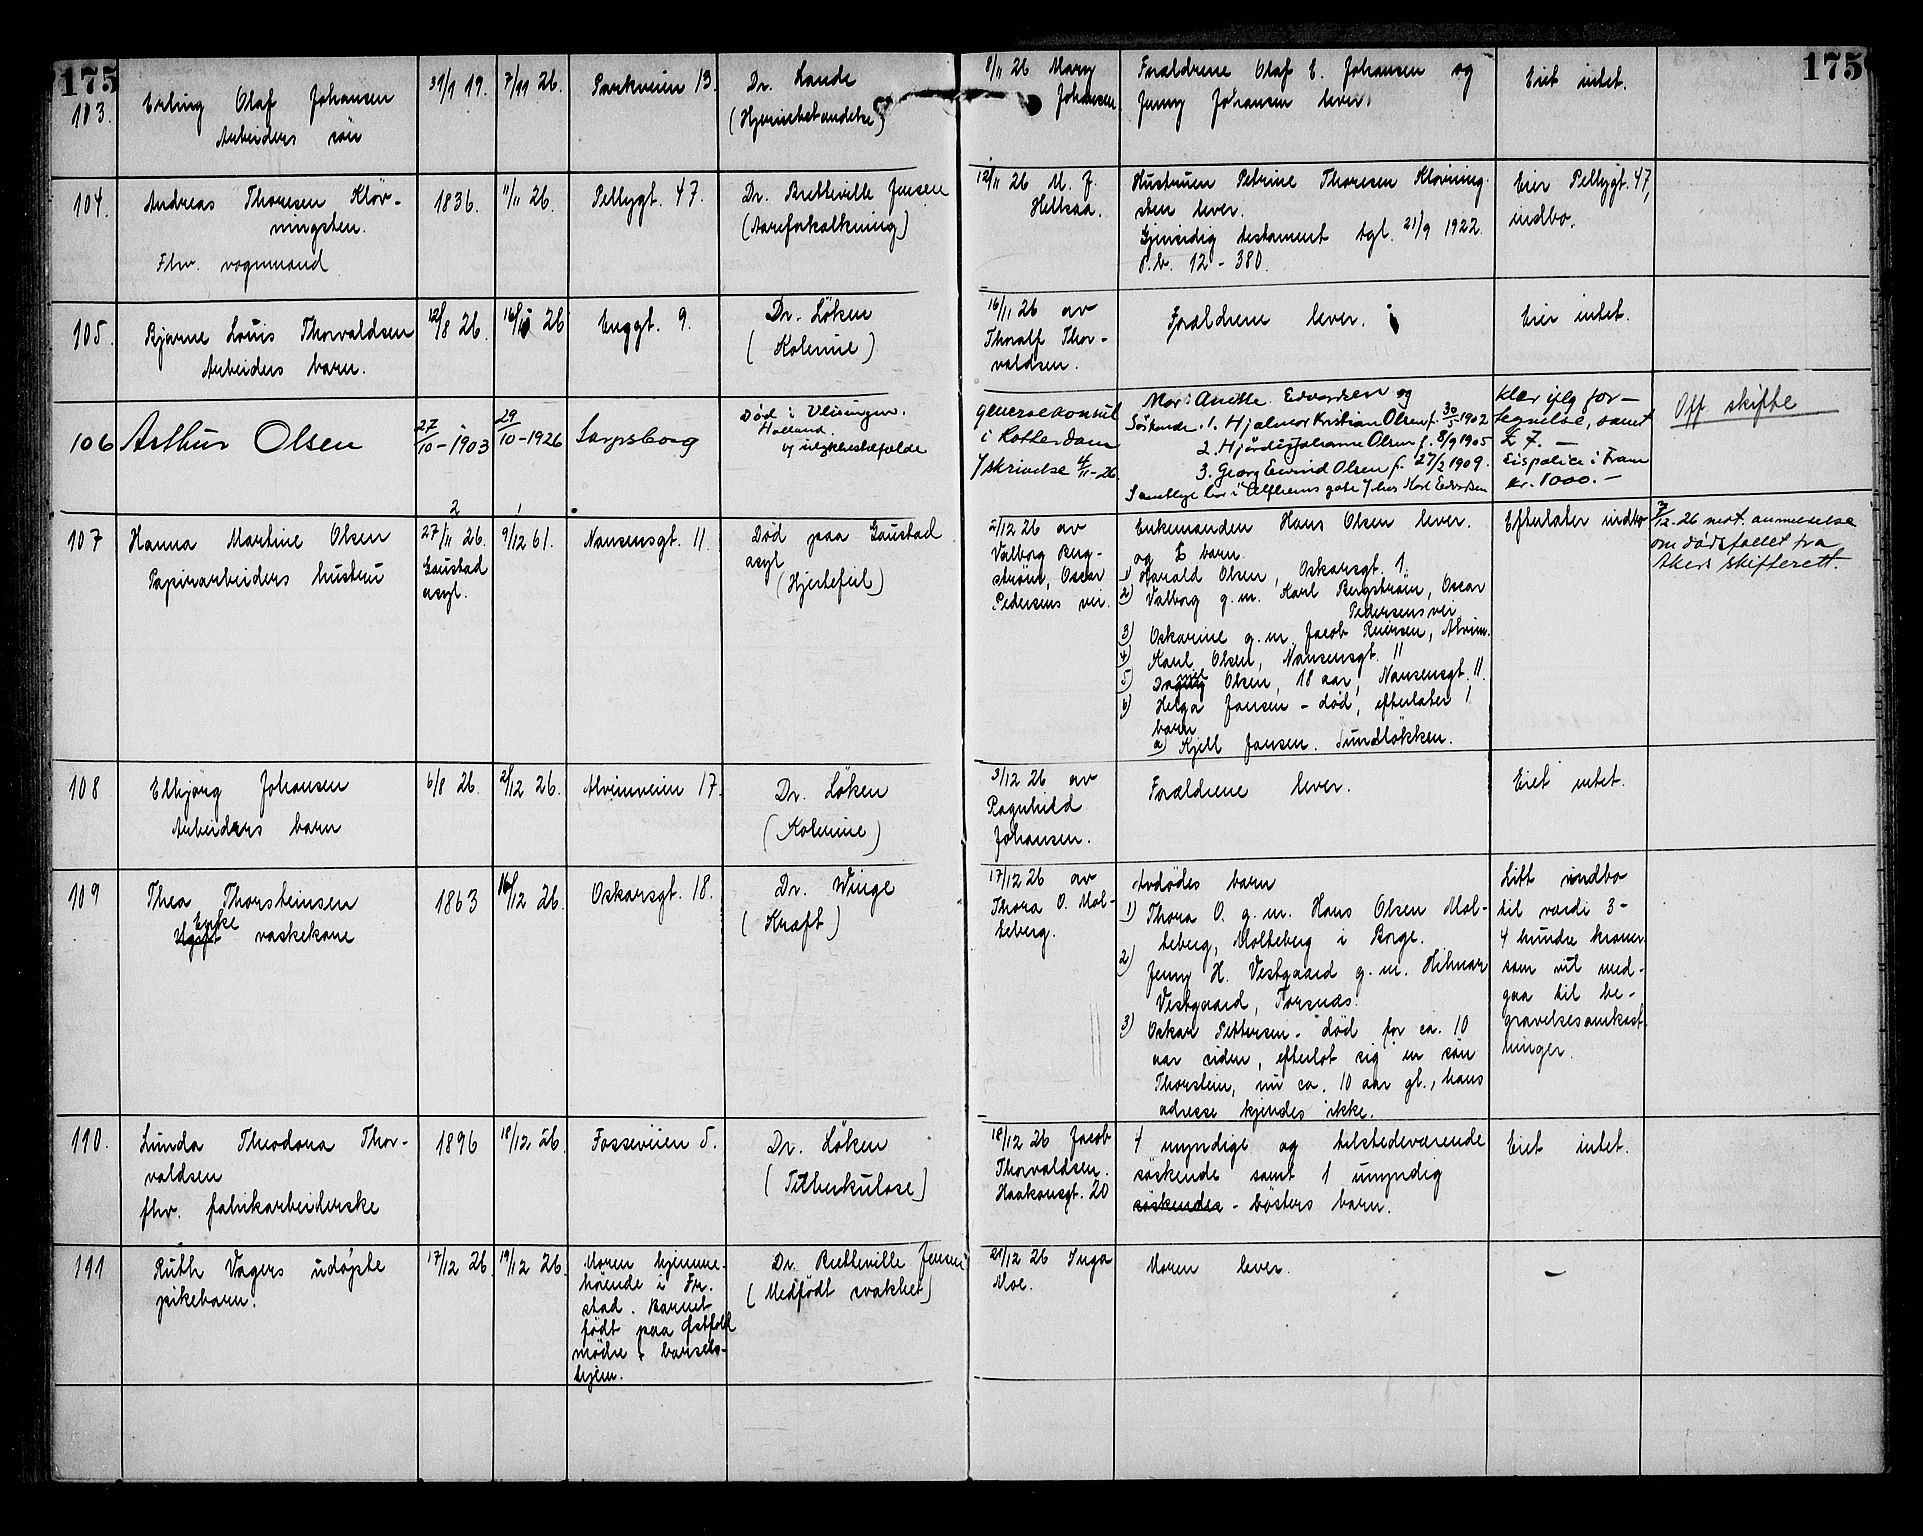 175
175
103.
Erling Olaf Johansen
Arbeiders søn
31/1 19.
7/11 26.
Parkveien 13.
Dr. Lande
(Hjernebetændelse)
8/11 26 Mary
Johansen
Forældrene Olaf E. Johansen og
Jenny Johansen lever.
Eiet intet.
104.
Andreas Thoresen Kløv-
ningsten.
Fhv. vognmand
1836.
11/11 26.
Pellygt. 47.
Dr. Bretteville Jensen
(Aareforkalkning)
12/11 26 M. J.
Helksaa.
Hustruen Petrine Thoresen Kløvning-
sten lever.
Gjensidig testament tgl. 21/9 1922.
P.b. 12 - 380.
Eier Pellygt. 47,
indbo.
105.
Bjarne Louis Thorvaldsen
Arbeiders barn.
12/8 26.
16/11 26
Enggt. 9.
Dr. Løken
(Kolerine)
16/11 26 av
Thoralf Thor-
valdsen.
Forældrene lever.
Eier intet.
106
Arthur Olsen
27/10 - 1903
29/10 - 1926
Sarpsborg
Død i Vlissingen.
Holland.
v/ ulykkestilfælde
Generalkonsul
i Rotterdam
/skrivelse 4/11-26
Mor: Anette Edvardsen og
Søskende. 1. Hjalmar Kristian Olsen f. 30/5 1902
2. Hjørdis Johanne Olsen f. 8/9 1905
3. Georg Eivind Olsen f. 27/2 1909.
Samtlige bor i Alfheims gate 7 hos Karl Edvardsen
Klær ifølg for-
tegnelse, samt
£ 7. —
Lispolice i Fram
kr. 1000. —
Off skifte
2
1
107
Hanna Martine Olsen
Papirarbeiders hustru
27/11 26.
Gaustad
asyl.
9/12 61.
Nansensgt. 11.
Død paa Gaustad
asyl
(Hjertefeil)
2/12 26 av
Valborg Berg-
strøm, Oscar
Pedersens vei.
Enkemanden Hans Olsen lever.
og 6 barn.
1) Harald Olsen, Oskarsgt. 1.
2) Valborg g.m. Karl Bergstrøm, Oscar
Pedersens vei
3) Oskarine g.m. Jacob Reiersen, Alvim.
4) Karl Olsen, Nansensgt. 11
5) Olsen, 18 aar, Nansensgt. 11.
6) Helga Jansen - død, efterlater 1
barn
a) Kjell Jansen. Sundløkken.
Efterlater indbo
7/12-26 mot. anmeldelse
om dødsfallet fra
Akers skifterett.
108
Elbjørg Johansen
Arbeiders barn
6/8 26.
2/12 26.
Alvimveien 17.
Dr. Løken
(Kolerine)
3/12 26 av
Ragnhild
Johansen.
Forældrene lever.
Eiet intet.
109
Thea Thorsteinsen
Enke
vaskekone
1863
16/12 26.
Oskarsgt. 18.
Dr. Winge
(Kræft)
17/12 26 av
Thora O. Mol-
teberg.
Avdødes barn
1) Thora O. g.m. Hans Olsen Mol-
teberg, Molteberg i Borge.
2) Jenny H. Vestgaard g.m. Hilmar
Vestgaard, Torsnæs.
3) Oskar Pettersen - død for ca. 10
aar siden, efterlot sig en søn
Thorstein, nu ca. 10 aar gl., hans
adresse kjendes ikke.
Litt indbo
til værdi 3-
4 hundre kroner
som vil med-
gaa til be-
gravelsesomkost-
ninger.
110.
Lunda Theodora Thor-
valdsen
fhv. fabrikarbeiderske
1896
18/12 26.
Fosseveien 5.
Dr. Løken
(Tuberkulose)
18/12 26 Jacob
Thorvaldsen.
Haakonsgt. 20
4 myndige og tilstedeværende
søskende samt 1 umyndig
søskendes - søsters barn.
Eiet intet.
111
Ruth Vagers udøpte
pikebarn.
17/12 26.
19/12 26.
Moren hjemme-
hørende i Fr.
stad. Barnet
født paa Østfold
mødre & barsels-
hjem.
Dr. Bretteville Jensen
(Medfødt svakhet)
21/12 26 Inga
Moe.
Moren lever.
—